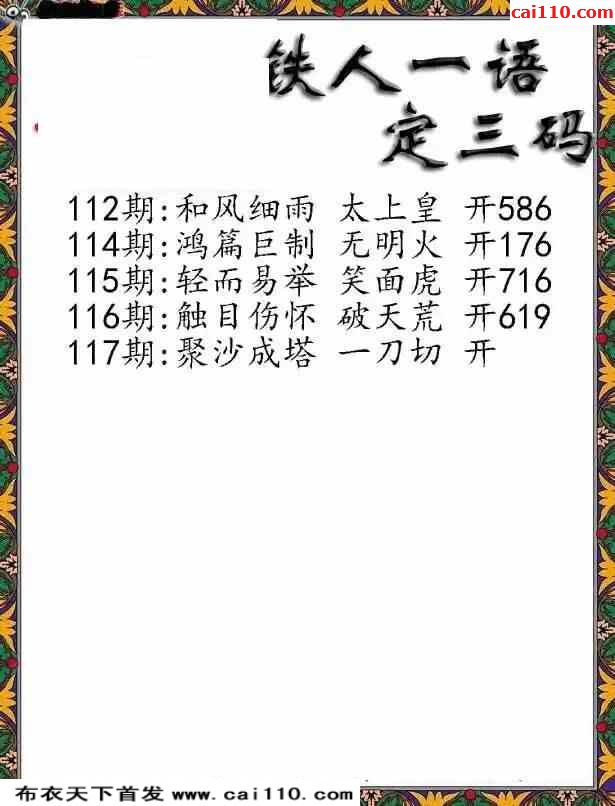 cai110.com
铁人一语
定三码
112期:和风细雨 太上皇 开586
114期:鸿篇巨制 无明火 开176
115期:轻而易举 笑面虎 开716
116期:触目伤怀 破天荒 开619
117期:聚沙成塔 一刀切 开
布衣天下首发 www.cai110.com